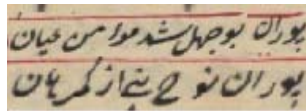 پوران بوجهل شد مومن عیان
پوران نوح نبی از گمرهان